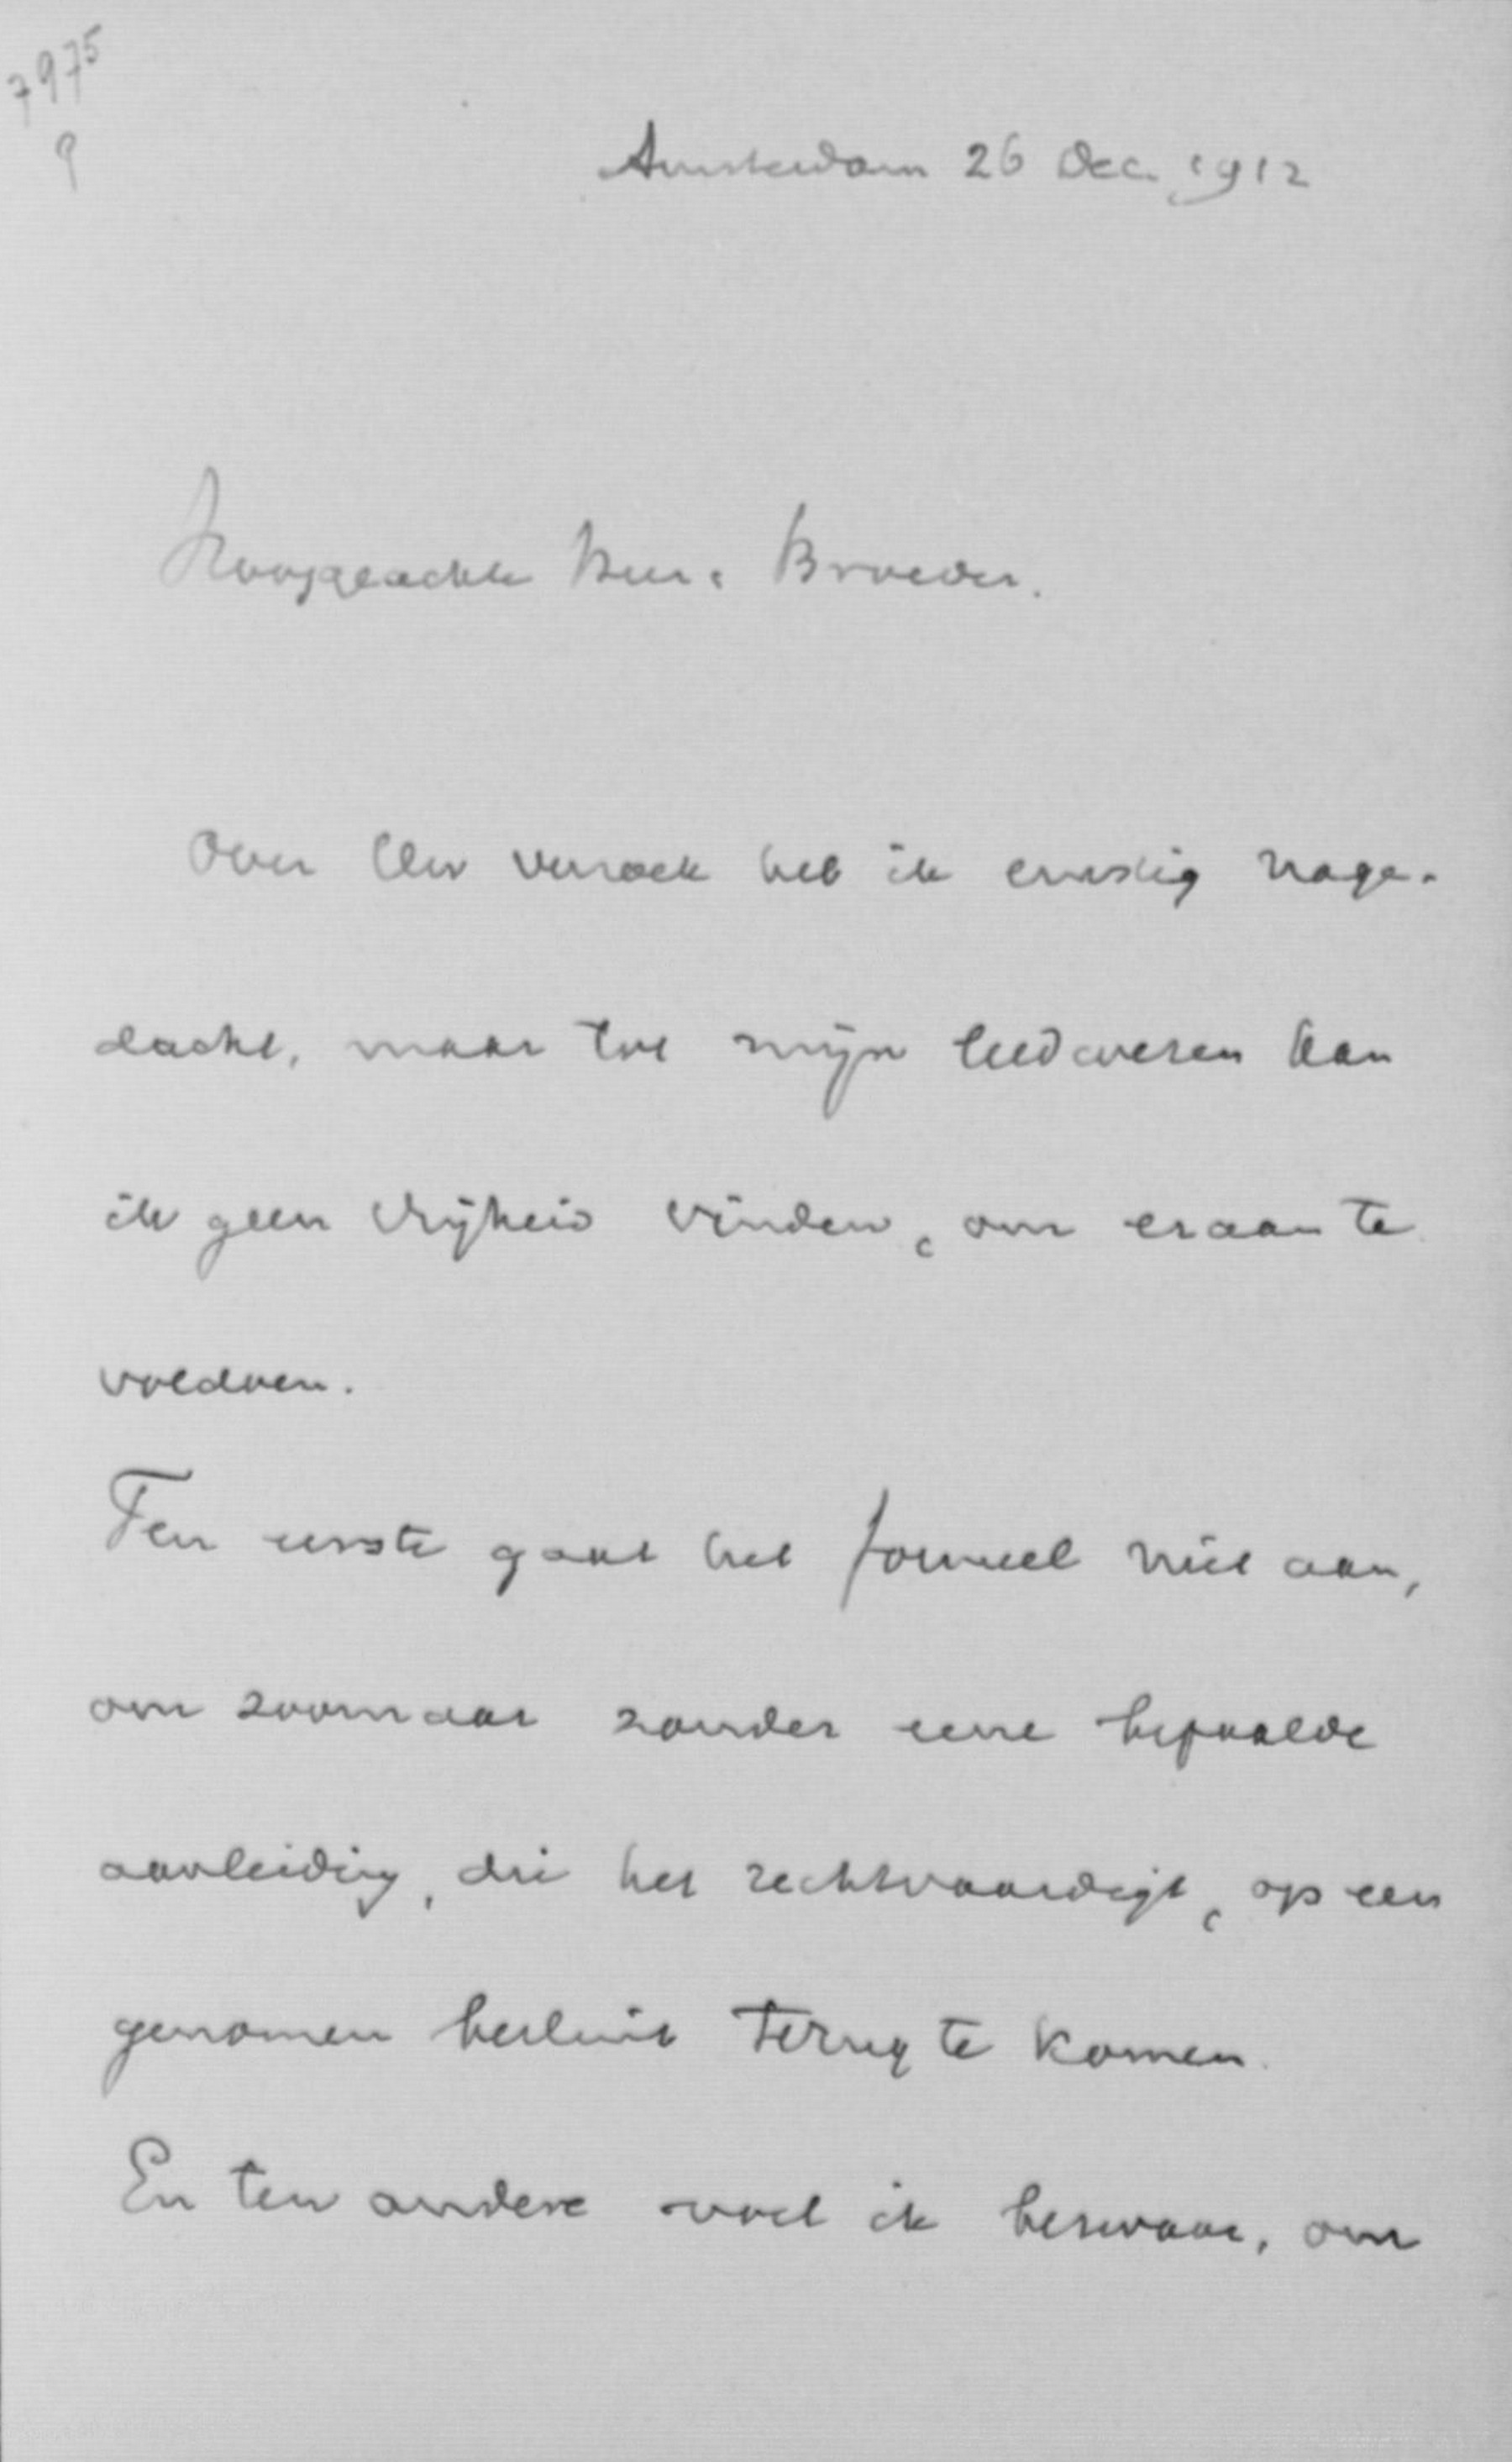 7975
9
Amsterdam 26 Dec. 1912
Hooggeachte Heer & Broeder.
Over Uw verzoek heb ik ernstig nage-
dacht, maar tot mijn leedwezen kan
ik geen vrijheid vinden, om eraan te
voldoen.
Ten eerste gaat het formeel niet aan,
om zoomaar zonder eene bepaalde
aanleiding, die het rechtvaardigt, op een
genomen besluit terug te komen.
En ten andere voel ik bezwaar, om